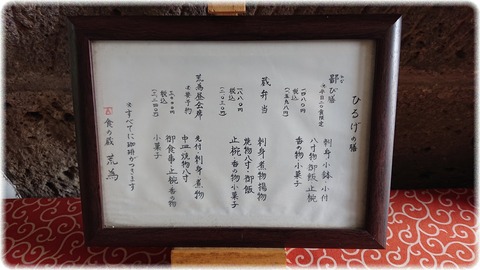 ひるげの膳
鄙び膳
※平日二〇食限定
一四八〇円
税込
(一五九八円)
刺身 小鉢 小付
八寸物 御飯 止椀
香の物 小菓子
蔵弁当
一八八〇円
税込
(二〇三〇円)
刺身 煮物 揚物
焼物 八寸 御飯
止椀 香の物 小菓子
荒為昼会席
※要予約
三〇〇〇円
税込
(三二四〇円)
先付 刺身 煮物
中皿 焼物 八寸
御食事 止椀 香の物
小菓子
※すべてに珈琲がつきます
食の蔵 荒為